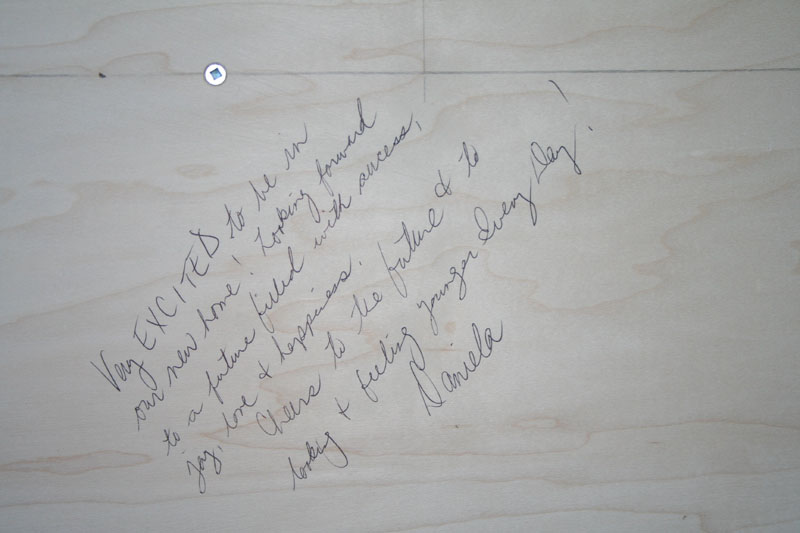 Very EXCITED to be in
our new home! Looking forward
to a future filled with sucess,
joy, love & happiness.
Cheers to the future & to
looking & feeling younger Every Day!
Daniela